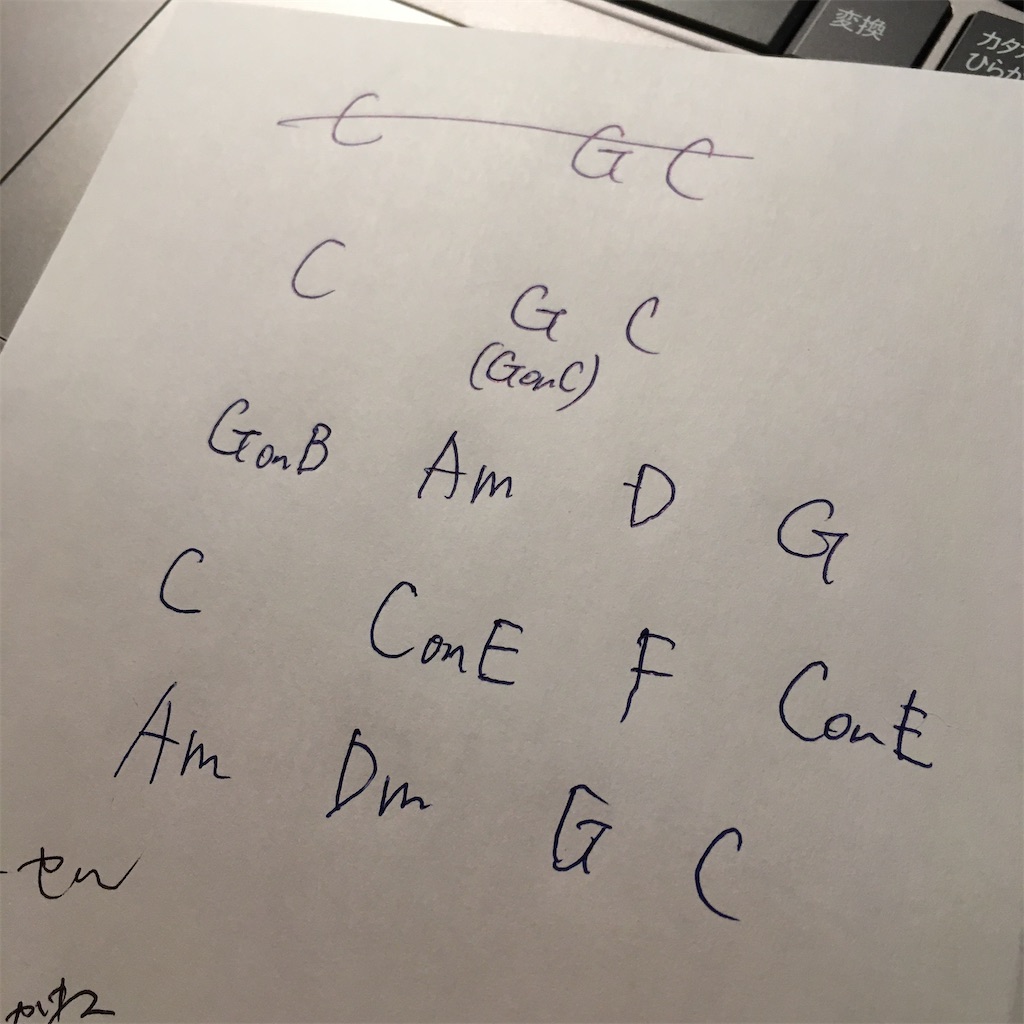 変換
カタカ
ひらが
C G C
C G C
(GonC)
GonB Am D G
C ConE F ConE
Am Dm G C